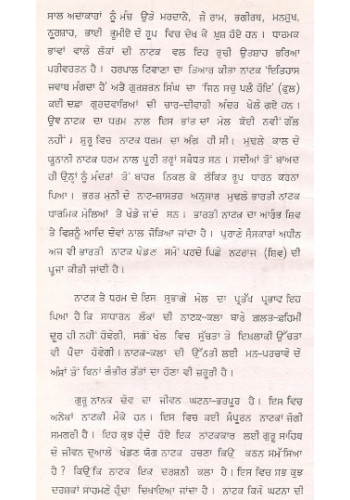 ਸਾਲ ਅਦਾਕਾਰਾਂ ਨੂੰ ਮੰਚ ਉਤੇ ਮਰਦਾਨੇ, ਜੈ ਰਾਮ, ਭਗੀਰਥ, ਮਨਸੁਖ,
ਨੂਰਸ਼ਾਹ, ਭਾਈ ਭੂਮੀਏ ਦੇ ਰੂਪ ਵਿਚ ਦੇਖ ਕੇ ਖੁਸ਼ ਹੋਏ ਹਨ । ਧਾਰਮਕ
ਭਾਵਾਂ ਵਾਲੇ ਲੋਕਾਂ ਦੀ ਨਾਟਕ ਵਲ ਇਹ ਰੁਚੀ ਉਤਸ਼ਾਹ ਭਰਿਆ
ਪਰੀਵਰਤਨ ਹੈ । ਹਰਪਾਲ ਟਿਵਾਣਾ ਦਾ ਤਿਆਰ ਕੀਤਾ ਨਾਟਕ 'ਇਤਿਹਾਸ
ਜਵਾਬ ਮੰਗਦਾ ਹੈ' ਅਤੇ ਗੁਰਸ਼ਰਨ ਸਿੰਘ ਦਾ 'ਜਿਨ ਸਚੁ ਪਲੈ ਹੋਇ' (ਫੁਲ)
ਕਈ ਦਫ਼ਾ ਗੁਰਦਵਾਰਿਆਂ ਦੀ ਚਾਰ-ਦੀਵਾਰੀ ਅੰਦਰ ਖੇਲੇ ਗਏ ਹਨ ।
ਉਞ ਨਾਟਕ ਦਾ ਧਰਮ ਨਾਲ ਇਸ ਭਾਂਤ ਦਾ ਮੇਲ ਕੋਈ ਨਵੀਂ ਗੱਲ
ਨਹੀਂ । ਸ਼ੁਰੂ ਵਿਚ ਨਾਟਕ ਧਰਮ ਦਾ ਅੰਗ ਹੀ ਸੀ । ਮੁਢਲੇ ਕਾਲ ਦੇ
ਯੂਨਾਨੀ ਨਾਟਕ ਧਰਮ ਨਾਲ ਪੂਰੀ ਤਰ੍ਹਾਂ ਸਬੰਧਤ ਸਨ । ਸਦੀਆਂ ਤੋਂ ਬਾਅਦ
ਹੀ ਉਨ੍ਹਾਂ ਨੂੰ ਮੰਦਰਾਂ ਤੋਂ ਬਾਹਰ ਨਿਕਲ ਕੇ ਲੌਕਿਕ ਰੂਪ ਧਾਰਨ ਕਰਨਾ
ਪਿਆ । ਭਰਤ ਮੁਨੀ ਦੇ ਨਾਟ-ਸ਼ਾਸਤਰ ਅਨੁਸਾਰ ਮੁਢਲੇ ਭਾਰਤੀ ਨਾਟਕ
ਧਾਰਮਿਕ ਮੇਲਿਆਂ ਤੇ ਖੇਡੇ ਜਾਂਦੇ ਸਨ । ਭਾਰਤੀ ਨਾਟਕ ਦਾ ਆਰੰਭ ਸ਼ਿਵ
ਤੇ ਵਿਸ਼ਨੂੰ ਆਦਿ ਦੇਵਾਂ ਨਾਲ ਜੋੜਿਆ ਜਾਂਦਾ ਹੈ । ਪੁਰਾਣੇ ਸੰਸਕਾਰਾਂ ਅਧੀਨ
ਅਜ ਵੀ ਭਾਰਤੀ ਨਾਟਕ ਖੇਡਣ ਸਮੇਂ ਪਰਦੇ ਪਿਛੇ ਨਟਰਾਜ (ਸ਼ਿਵ) ਦੀ
ਪੂਜਾ ਕੀਤੀ ਜਾਂਦੀ ਹੈ ।
ਨਾਟਕ ਤੇ ਧਰਮ ਦੇ ਇਸ ਸੁਭਾਗੇ ਮੇਲ ਦਾ ਪ੍ਰਤੱਖ ਪ੍ਰਭਾਵ ਇਹ
ਪਿਆ ਹੈ ਕਿ ਸਾਧਾਰਨ ਲੋਕਾਂ ਦੀ ਨਾਟਕ-ਕਲਾ ਬਾਰੇ ਗ਼ਲਤ-ਫ਼ਹਿਮੀ
ਦੂਰ ਹੀ ਨਹੀਂ ਹੋਵੇਗੀ, ਸਗੋਂ ਖੇਲ ਵਿਚ ਸੁੱਚਤਾ ਤੇ ਇਖ਼ਲਾਕੀ ਉੱਚਤਾ
ਵੀ ਪੈਦਾ ਹੋਵੇਗੀ । ਨਾਟਕ-ਕਲਾ ਦੀ ਉੱਨਤੀ ਲਈ ਮਨ-ਪਰਚਾਵੇ ਦੇ
ਅੰਸ਼ਾਂ ਤੋਂ ਬਿਨਾਂ ਗੰਭੀਰ ਤੱਤਾਂ ਦਾ ਹੋਣਾ ਵੀ ਜ਼ਰੂਰੀ ਹੈ ।
ਗੁਰੂ ਨਾਨਕ ਦੇਵ ਦਾ ਜੀਵਨ ਘਟਨਾ-ਭਰਪੂਰ ਹੈ । ਇਸ ਵਿਚ
ਅਨੇਕਾਂ ਨਾਟਕੀ ਮੌਕੇ ਹਨ । ਇਸ ਵਿਚ ਕਈ ਸੰਪੂਰਨ ਨਾਟਕਾਂ ਜੋਗੀ
ਸਮਗਰੀ ਹੈ । ਇਹ ਕੁਝ ਹੁੰਦੇ ਹੋਏ ਇਕ ਨਾਟਕਕਾਰ ਲਈ ਗੁਰੂ ਸਾਹਿਬ
ਦੇ ਜੀਵਨ ਦੁਆਲੇ ਖੇਡਣ ਯੋਗ ਨਾਟਕ ਰਚਣਾ ਕਿਉਂ ਕਠਨ ਸਮੱਸਿਆ
ਹੈ ? ਕਿਉਂਕਿ ਨਾਟਕ ਇਕ ਦਰਸ਼ਨੀ ਕਲਾ ਹੈ । ਇਸ ਵਿਚ ਸਭ ਕੁਝ
ਦਰਸ਼ਕਾਂ ਸਾਹਮਣੇ ਹੁੰਦਾ ਦਿਖਾਇਆ ਜਾਂਦਾ ਹੈ । ਨਾਟਕ ਕਿਸੇ ਘਟਨਾ ਦੀ